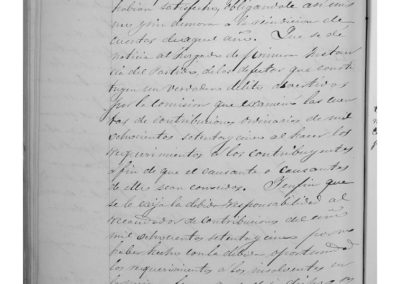 habian satisfecho, obligandole asi mis
mo y sin demora a la rendicion de
cuentas de aquel año. Que se dé
noticia al Juzgado de primera Instan
cia del Partido, de los defectos que consti
tuyen un verdadero delito advertidos
por la comision que examinó las cuen
tas de contribuciones ordinarias de mil
ochocientos setenta y cinco al hacer los
requerimientos a los contribuyentes
a fin de que el causante o causantes
de ellos sean corregidos. Y en fin que
se le exija la debida responsabilidad al
recaudador de contribuciones del año
mil ochocientos setenta y cinco por no
haber hecho con la debida oportunidad
los requerimientos a los insolventes en